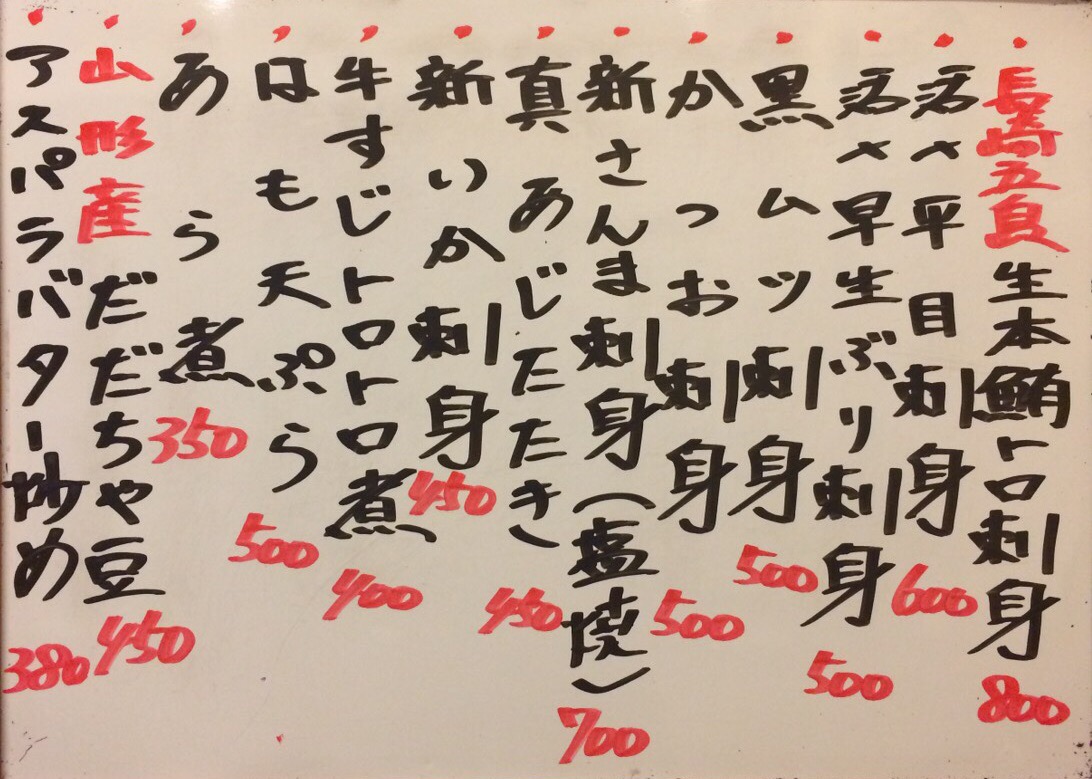 ・長崎五島生本鮪トロ刺身 800
・活〆平目刺身 600
・活〆早生ぶり刺身 500
・黒ムツ刺身 500
・かつお刺身 500
・新さんま刺身(塩焼) 700
・真あじたたき 450
・新いか刺身 450
・牛すじトロトロ煮 400
・はも天ぷら 500
・あら煮 350
・山形産だだちゃ豆 450
・アスパラバター炒め 380